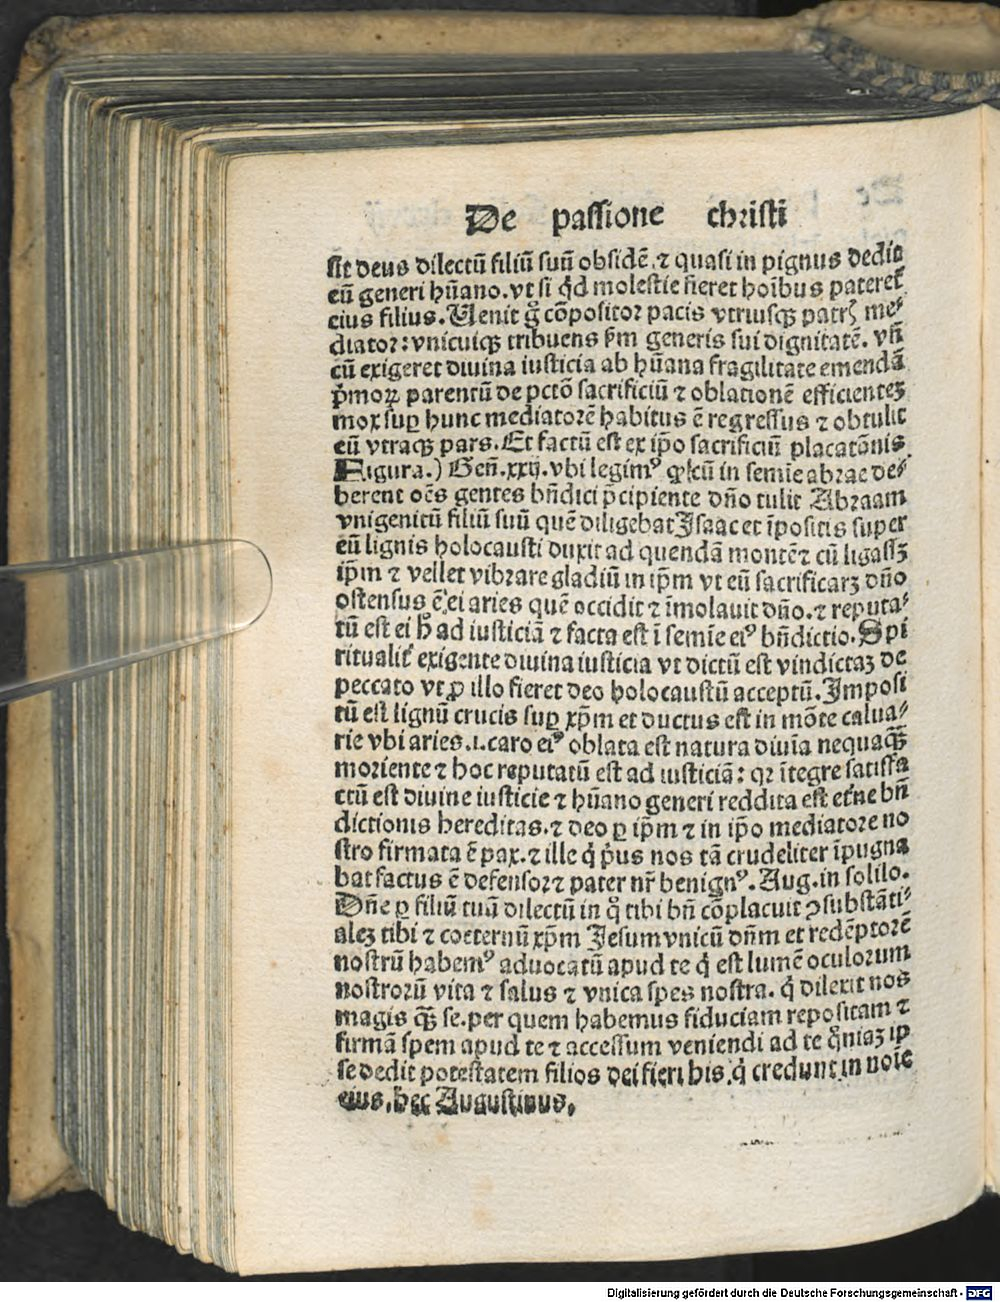 De passione christi
sit deus dilectū filiū suū obsidē ⁊ quasi in pignus dedit
eū generi hūano. vt si qd̓ molestie fieret hoībus pateret᷑
eius filius. Uenit gͦ cōpositor pacis vtriusqꝫ patrꝭ me⸗
diator: vnicuiqꝫ tribuens ẜm generis sui dignitatē. vn̄
cū exigeret diuina iusticia ab hūana fragilitate emendā
p̓moꝝ parentū de pctō sacrificiū ⁊ oblationē efficientez
mox suꝑ hunc mediatorē habitus ē regressus ⁊ obtulit
eū vtraqꝫ pars. Et factū est ex ip̄o sacrificiū placatōnis
Figura.) Gen̄. xxij. vbi legimꝰ ꝙ cū in semīe abrae de⸗
berent oēs gentes bn̄dici p̄cipiente dn̄o tulit Abraam
vnigenitū filiū suū quē diligebat Isaac et īpositis super
eū lignis holocausti duxit ad quendā montē ⁊ cū ligassꝫ
ip̄m ⁊ vellet vibrare gladiū in ip̄m vt eū sacrificarꝫ dn̄o
ostensus ē ei aries quē occidit ⁊ īmolauit dn̄o. ⁊ reputa⸗
tū est ei h̄ ad iusticiā ⁊ facta est ī semīe eiꝰ bn̄dictio. Spi
ritualit᷑ exigente diuina iusticia vt dictū est vindictaꝫ de
peccato vt ꝓ illo fieret deo holocaustū acceptū. Imposi
tū est lignū crucis suꝑ xp̄m et ductus est in mōte calua⸗
rie vbi aries .i. caro eiꝰ oblata est natura diuīa nequaꝙ̄
moriente ⁊ hoc reputatū est ad iusticiā: qꝛ ītegre satisfa
ctū est diuine iusticie ⁊ hūano generi reddita est et̓ne bn̄
dictionis hereditas. ⁊ deo ꝑ ip̄m ⁊ in ip̄o mediatore no
stro firmata ē pax. ⁊ ille q̓ p̓us nos tā crudeliter īpugna
bat factus ē defensor ⁊ pater nr̄ benignꝰ. Aug. in solilo.
Dn̄e ꝑ filiū tuū dilectū in qͦ tibi bn̄ cōplacuit ꝯsubstāti⸗
alez tibi ⁊ coeternū xp̄m Jesum vnicū dn̄m et redēptorē
nostrū habemꝰ aduocatū apud te q̓ est lumē oculorum
nostrorū vita ⁊ salus ⁊ vnica spes nostra. q̓ dilexit nos
magis ꝙ̄ se. per quem habemus fiduciam repositam ⁊
firmā spem apud te ⁊ accessum veniendi ad te qm̄iaꝫ ip
se dedit potestatem filios dei fieri his q̓ credunt in noīe
eius. hec Augustinus.
Digitalisierung gefördert durch die Deutsche Forschungsgemeinschaft - DFG